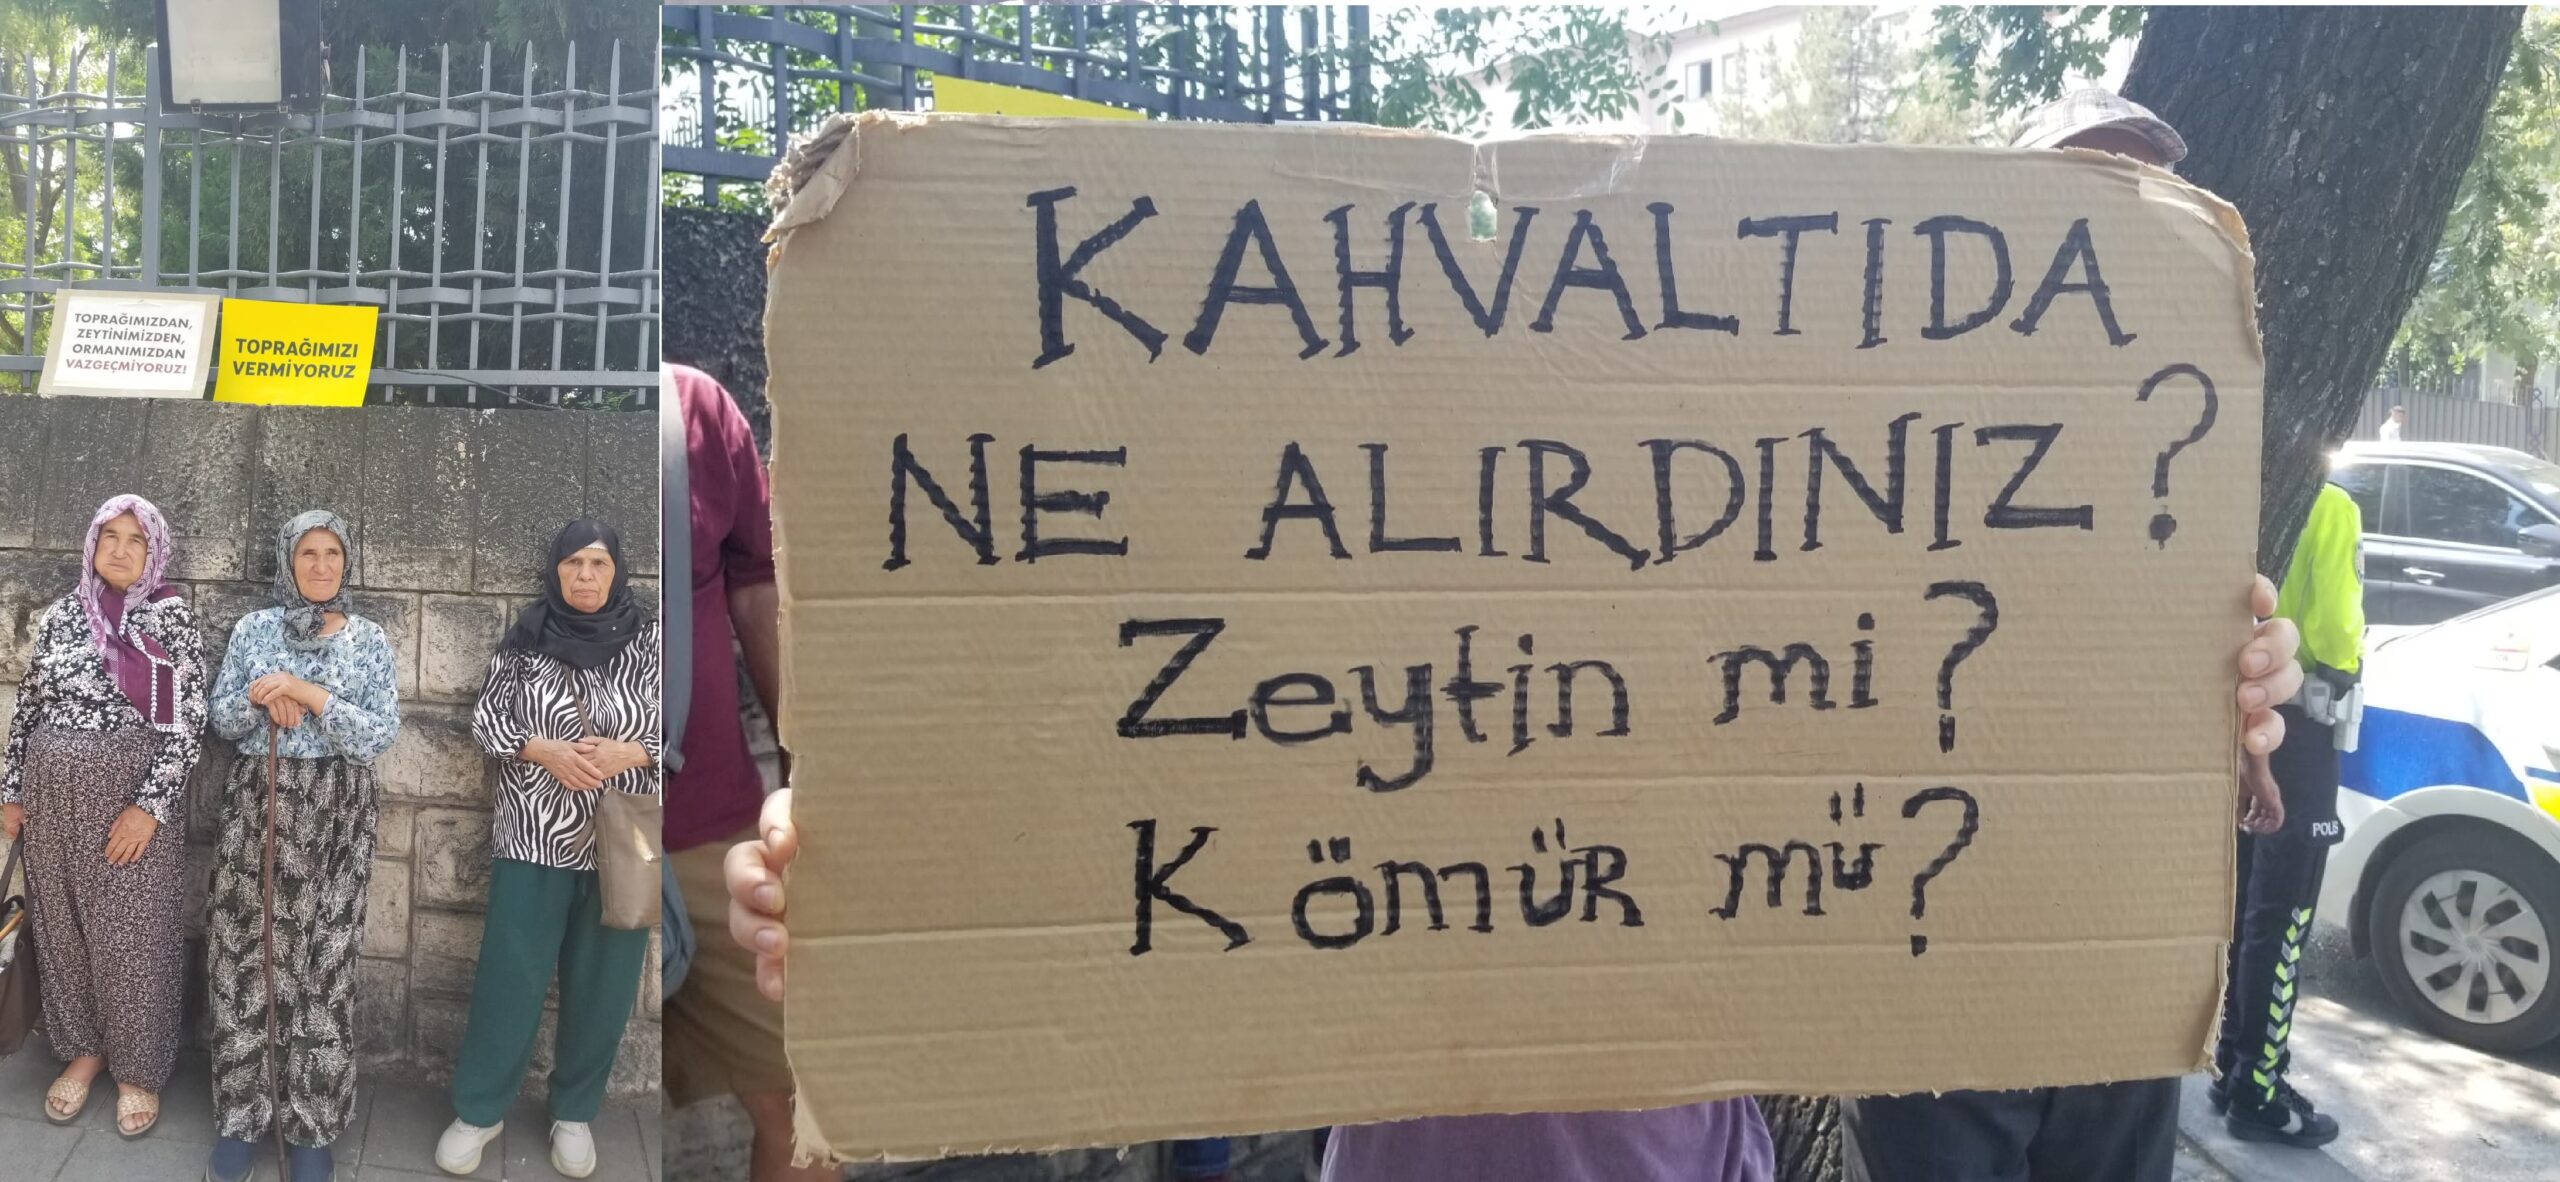 TOPRAĞIMIZDAN,
ZEYTİNİMİZDEN,
ORMANIMIZDAN
VAZGEÇMİYORUZ!
TOPRAĞIMIZI
VERMİYORUZ
KAHVALTIDA
NE ALIRDINIZ?
Zeytin mi?
KömüR mü?
POLİS